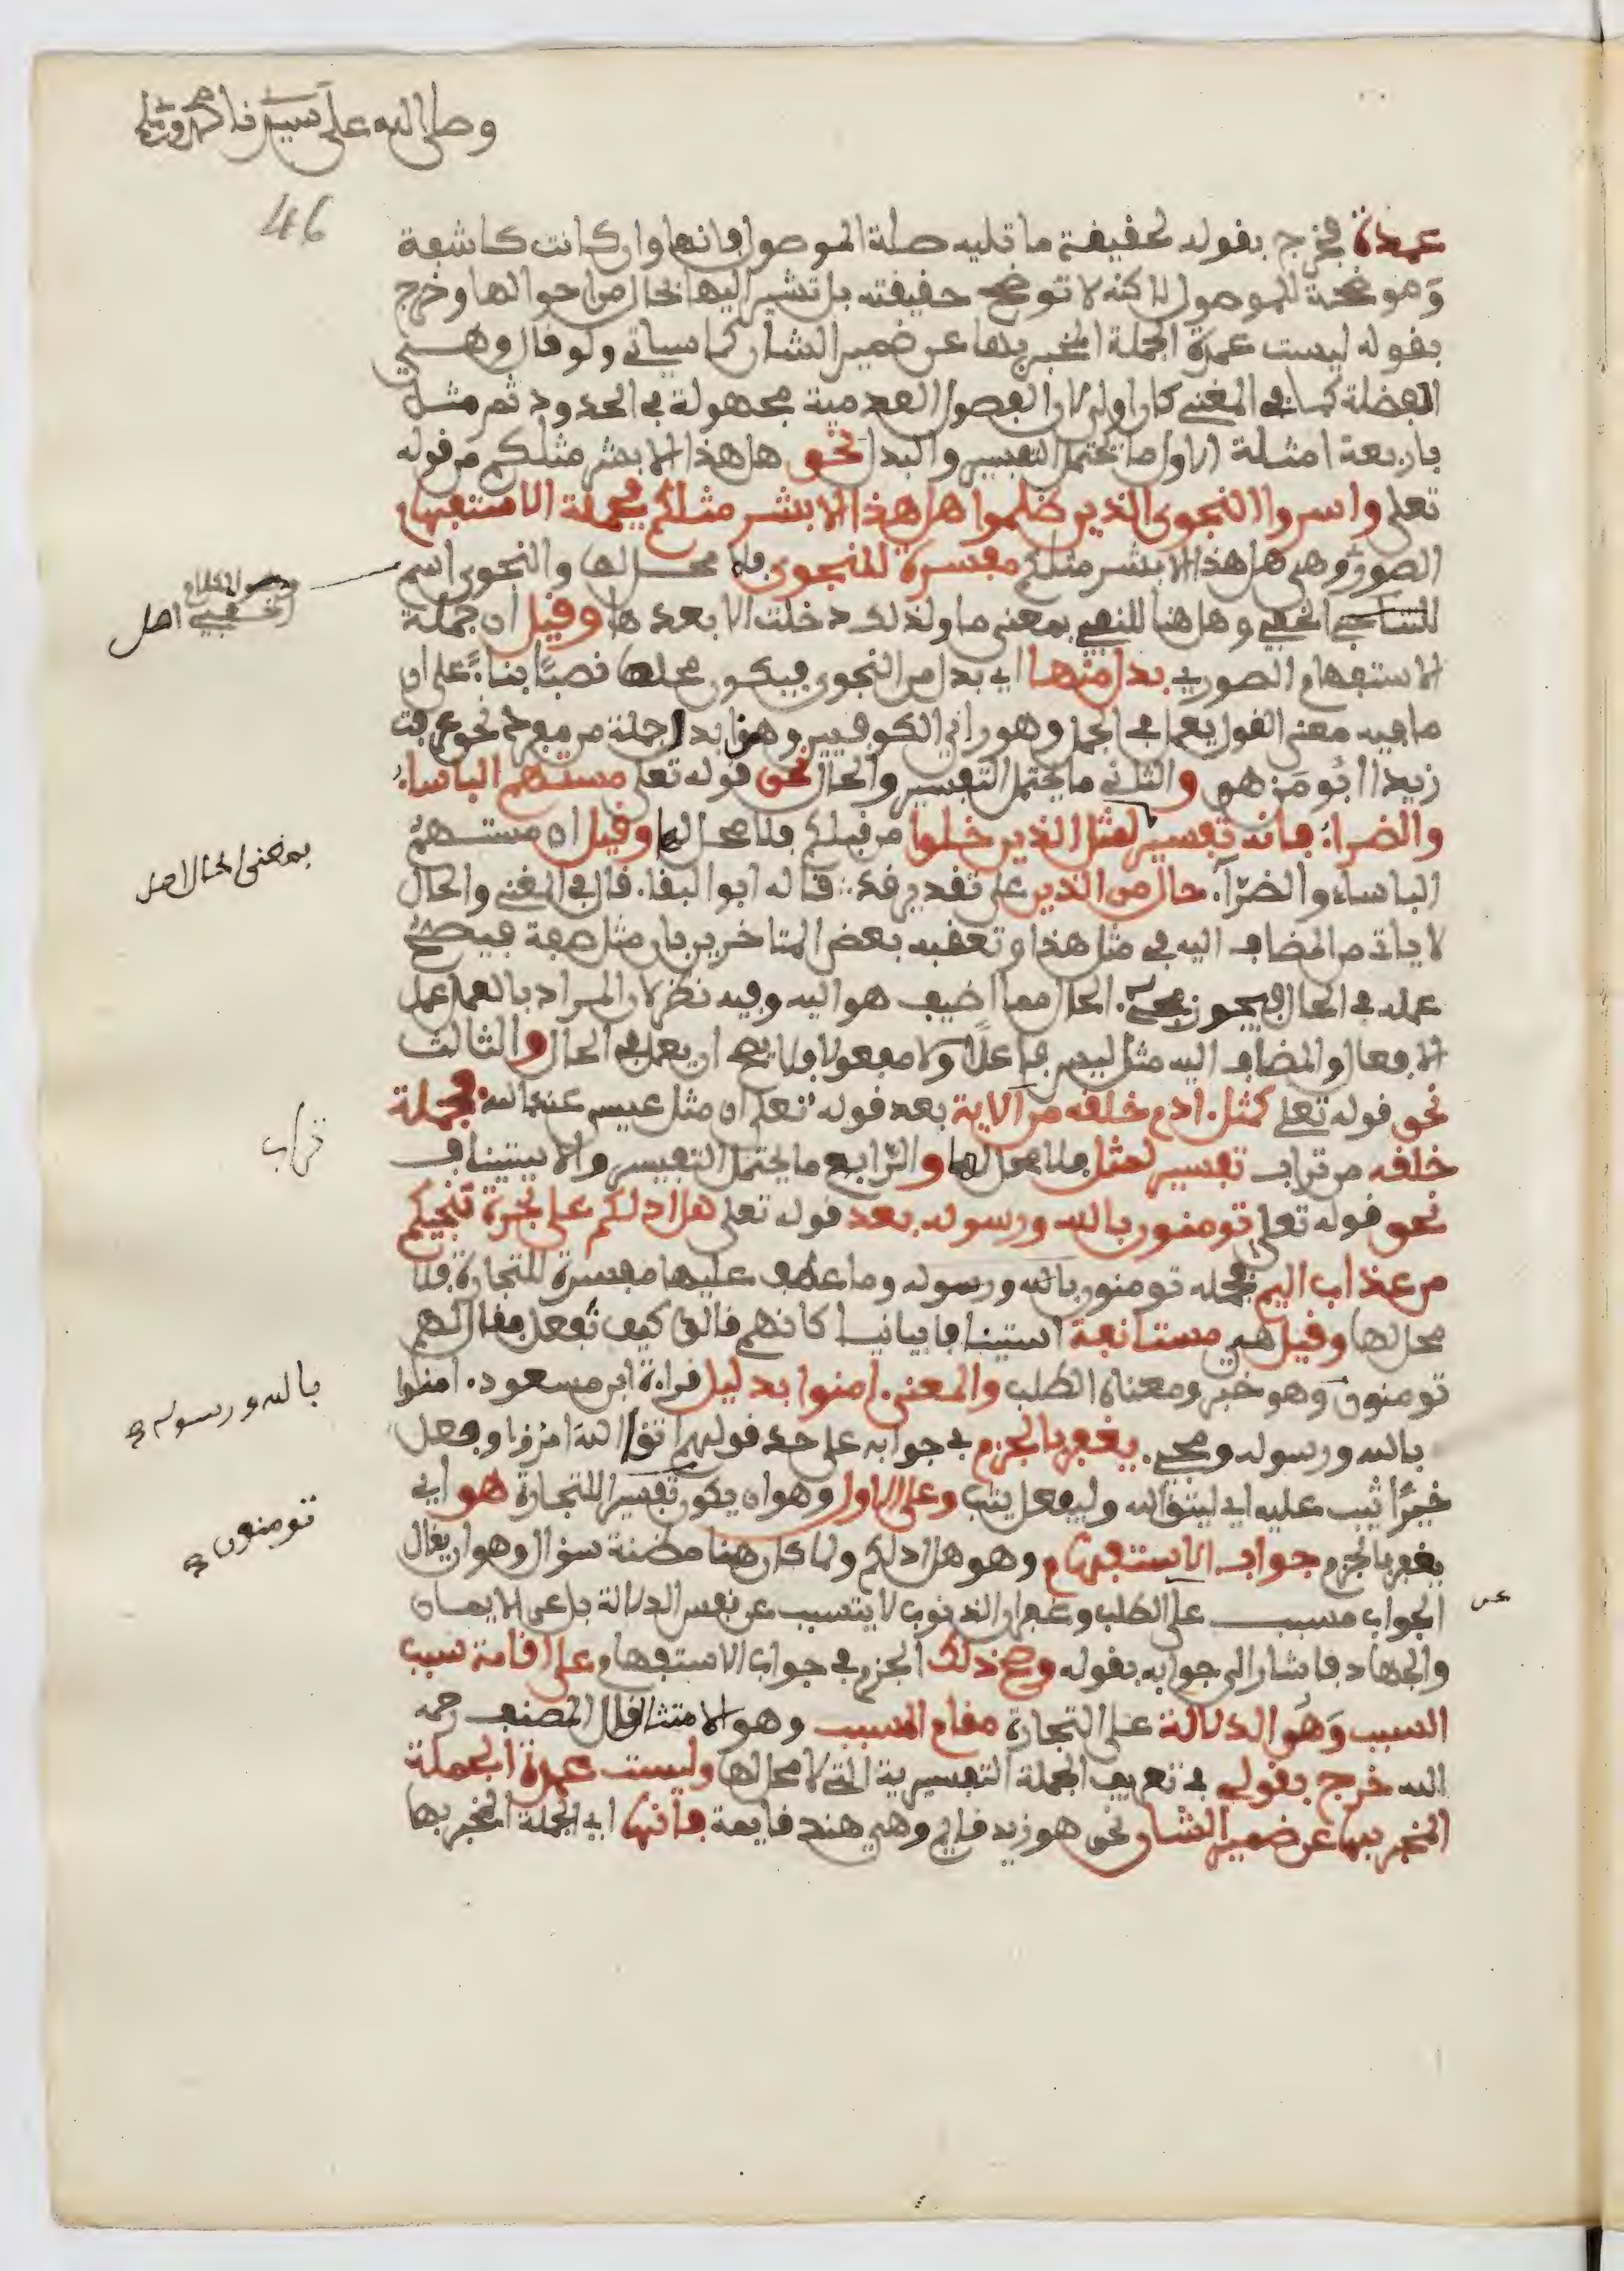 وصلى الله على سيدنا محمد وءاله
46
عمدة فخرج بقوله لحقيقة ما تليه صلة الموصول فانها وان كانت كاشفة
وموضحة للموصول لاكنه لا توضح حقيقته بل تشير اليها بحال من احوالها وخرج
بقوله ليست عمدة الجملة المخبر بها عن ضمير الشان كما سياتي ولو قال وهي
الفضلة كما في المغني كان اولى لان الفصول العدمية مجهولة في الحدود ثم مثل
باربعة امثلة الاول ما يحتمل التفسير والبدل نحو هل هذا الا بشر مثلكم من قوله
تعلى واسروا النجوى الذين ظلموا هل هذا الا بشر مثلكم فجملة الاستفهام
الصوري وهي هل هذا الا بشر مثلكم مفسرة للنجوى فلا محل لها والنجوى اسم
للتناجي الخفي وهل هنا للنفي بمعنى ما ولذلك دخلت الا بعدها وقيل ان جملة
الاستفهام الصوري بدل منها اي بدل من النجوى فيكون محلها نصبًا بناءً على ان
ما فيه معنى القول يعمل في الجمل وهو راي الكوفيين وهذا بدل جملة من مفرد نحو عرفت
زيدا ابُو مَن هو والثاني ما يحتمل التفسير والحال نحو قوله تعلى مستهم الباساء
والضراء فانه تفسير لمثل الذين خلوا من قبلكم فلا محل لها وقيل ان مستهم
الباساء والضرّآء حال من الذين على تقدير قد قاله ابو البقا. قال في المغني والحال
لا ياتي من المضاف اليه في مثل هذا وتعقبه بعض المتاخرين بان مثل صفة فيصح
عمله في الحال فيجوز مجيء الحال مما اضيف هو اليه وفيه نظر لان المراد بالعمل عمل
الافعال والمضاف اليه مثل ليس فاعلاً وَلا مفعولا فلا يصح ان يعمل في الحال والثالث
نحو قوله تعلى كمثل ءادم خلقه من الاية بعد قوله تعلى ان مثل عيسى عند الله فجملة
خلقه من تراب تفسير لمثل فلا محل لها والرّابع ما يحتمل التفسير والاستيناف
نحو قوله تعلى تومنون بالله ورسوله بعد قوله تعلى هل ادلكم على تجرة تنجيكم
من عذاب اليم فجملة تومنون بالله ورسوله وما عطف عليها مفسرة للتجارة فلا
محل لها وقيل هي مستانفة استينافا بيانيا كانهم قالوا كيف نَفعل فقال لهم
تومنون وهو خبر ومعناه الطلب والمعنى ءامنوا بدليل قراءة ابن مسعود ءامنوا
بالله ورسوله ومجيء يغفر بالجزم في جوابه على حد قولهم اتقى الله امرؤا وفعل
خيرًا يثب عليه اي ليتق الله وليفعل يثب وعلى الاول وهو ان يكون تفسيرا للتجارة هو اي
يغفر بالجزم جواب الاستفهام وهو هل ادلكم ولما كان هنا مظنة سؤال وهو ان يقال
الجواب مسبب على الطلب وغفران الذنوب لا يتسبب عن نفس الدلالة بل عن الايمان
والجهاد فاشار الى جوابه بقوله وصح ذلك الجزم في جواب الاستفهام على اقامة سبب
السبب وَهُو الدلالة على التجارة مقام المسبب وهو الامتثال قال المصنف رحمه
الله خرج بقولي في تعريف الجملة التفسيرية التي لا محل لها وليست عمدة الجملة
المخبر بها عن ضمير الشان نحو هو زيد قايم وهي هند قايمة فانها اي الجملة المخبر بها
اصل
بمعنى الحال اصل
تراب
بالله ورسوله
تومنون
عن